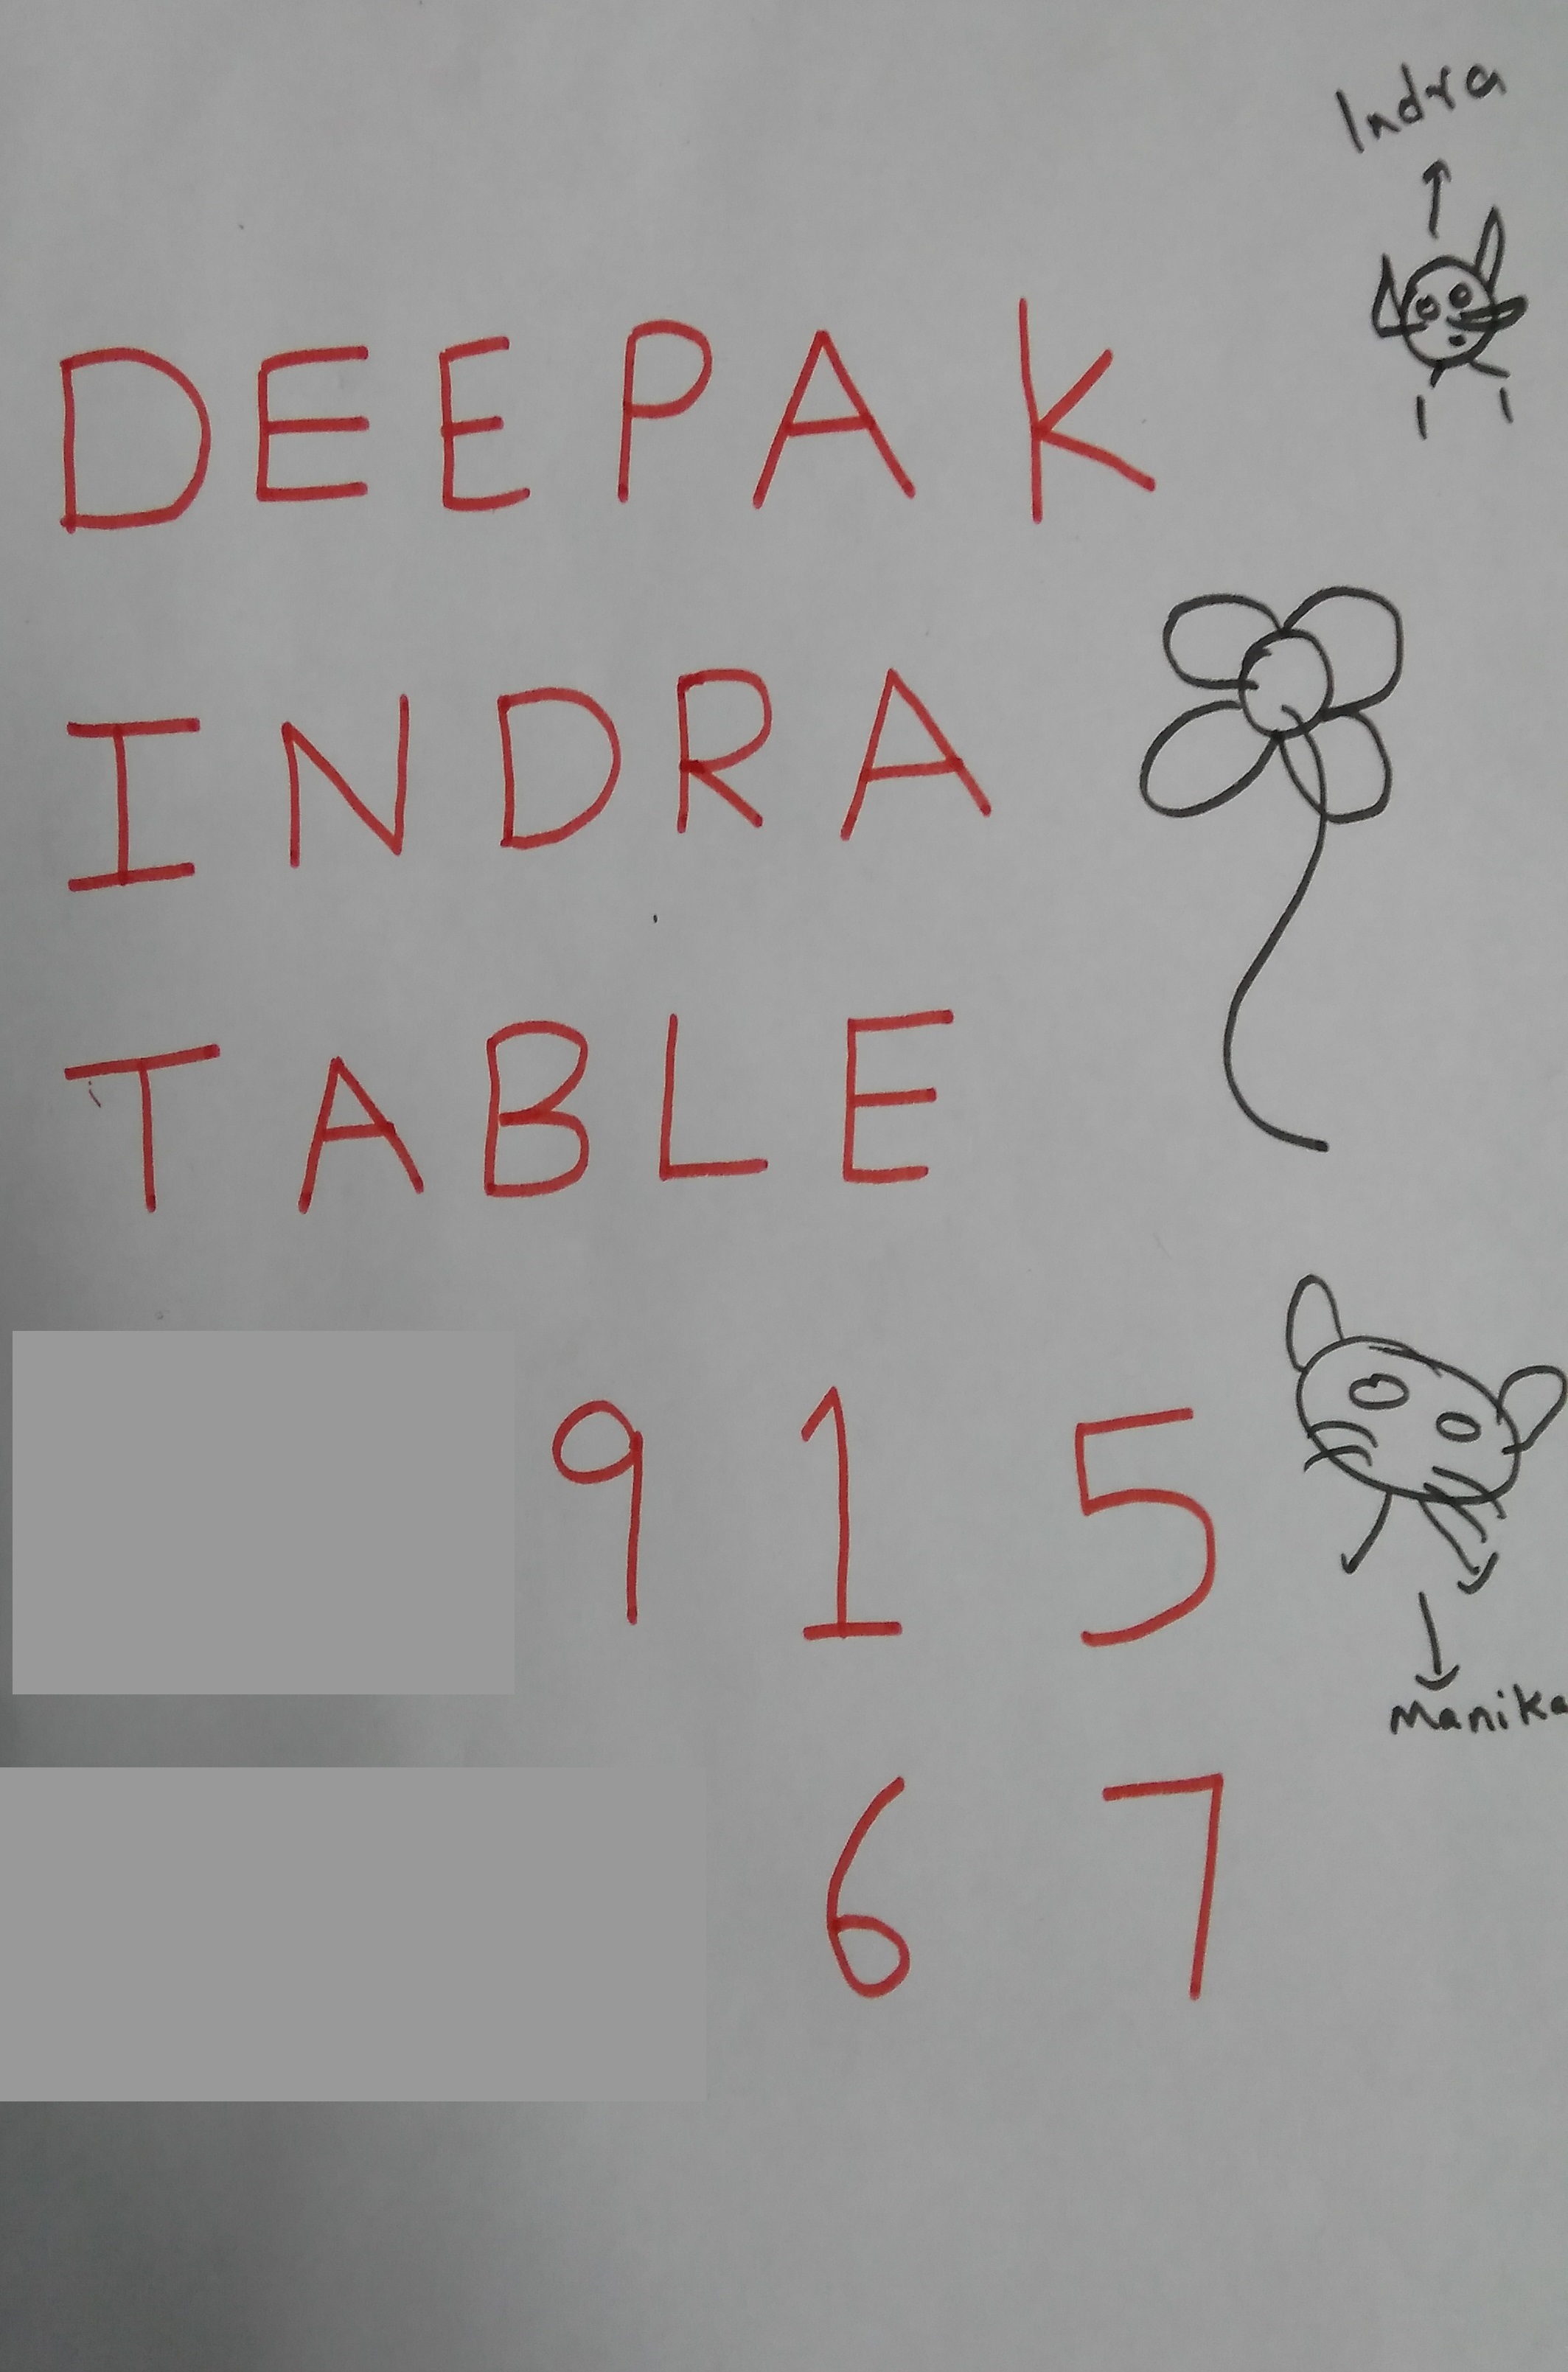 Indra
DEEPAK
INDRA
TABLE
915
Manika
67